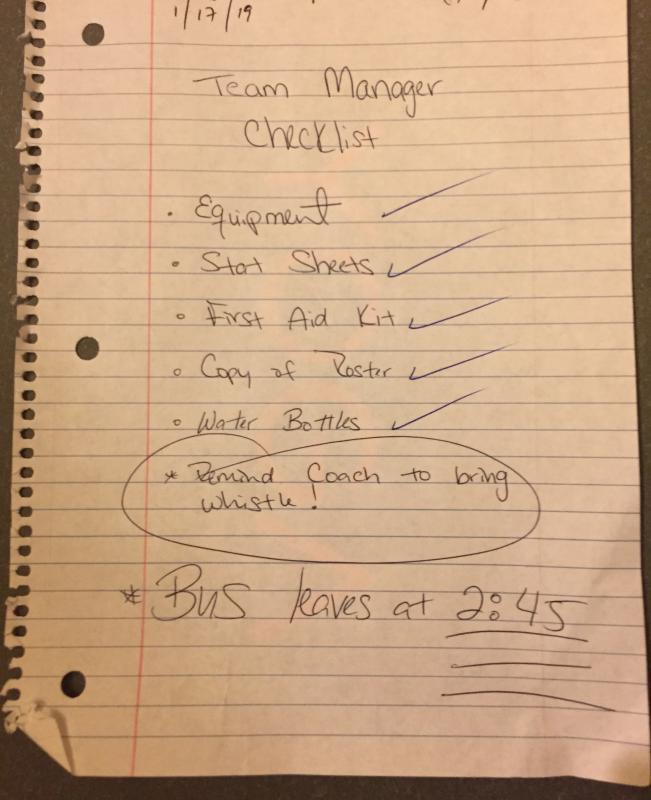 1/17/19
Team Manager
Checklist
• Equipment ✓
• Stat Sheets ✓
• First Aid Kit ✓
• Copy of Roster ✓
• Water Bottles ✓
* Remind Coach to bring
whistle!
* Bus leaves at 2:45